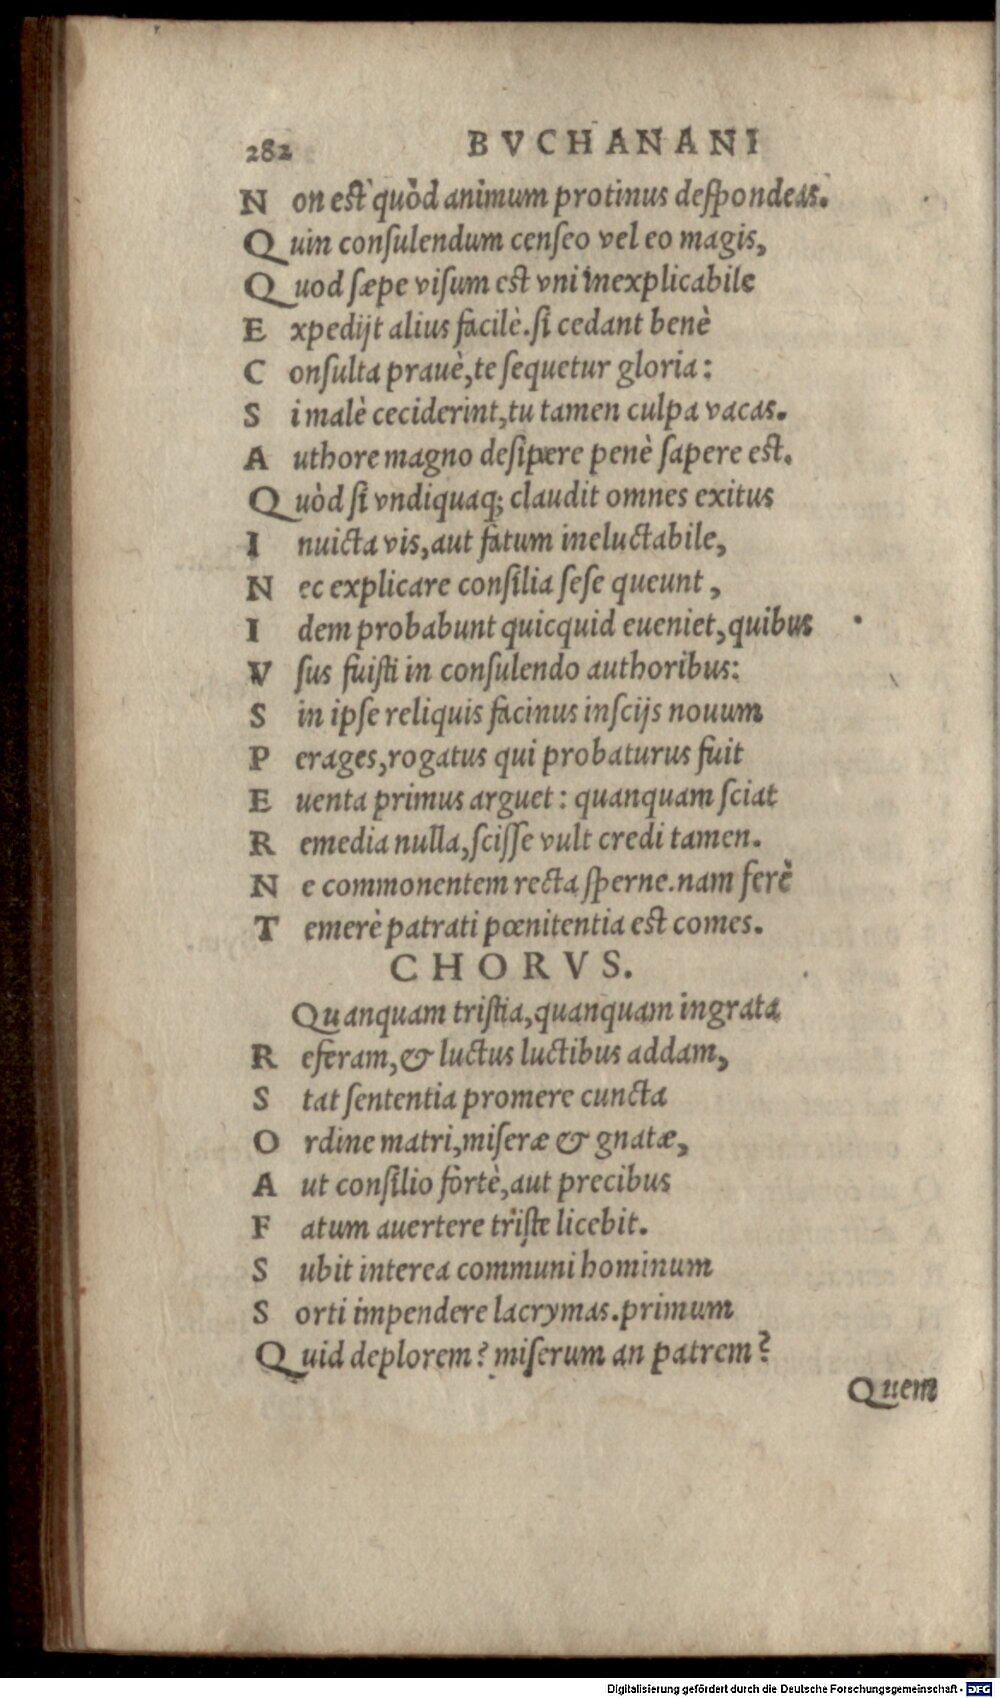 282 BVCHANANI
Non est quòd animum protinus despondeas.
Quin consulendum censeo vel eo magis,
Quod sæpe visum est vni inexplicabile
Expedijt alius facilè. si cedant benè
Consulta prauè, te sequetur gloria:
Si malè ceciderint, tu tamen culpa vacas.
Authore magno desipere penè sapere est.
Quòd si vndiquaq; claudit omnes exitus
Inuicta vis, aut fatum ineluctabile,
Nec explicare consilia sese queunt,
Idem probabunt quicquid eueniet, quibus
Vsus fuisti in consulendo authoribus:
Sin ipse reliquis facinus inscijs nouum
Perages, rogatus qui probaturus fuit
Euenta primus arguet: quanquam sciat
Remedia nulla, scisse vult credi tamen.
Ne commonentem recta sperne. nam ferè
Temerè patrati pœnitentia est comes.
CHORVS.
Quanquam tristia, quanquam ingrata
Referam, & luctus luctibus addam,
Stat sententia promere cuncta
Ordine matri, miseræ & gnatæ,
Aut consilio fortè, aut precibus
Fatum auertere triste licebit.
Subit interea communi hominum
Sorti impendere lacrymas. primum
Quid deplorem? miserum an patrem?
Quem
Digitalisierung gefördert durch die Deutsche Forschungsgemeinschaft - DFG